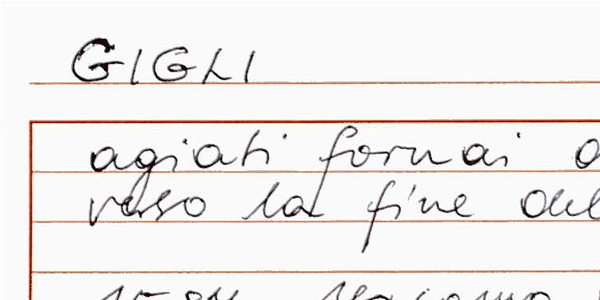 GIGLI
agiati fornai
verso la fine del